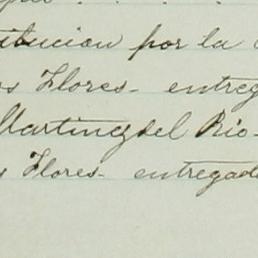 itucion por la
os Flores- entreg
Martinez del Rio-
s Flores- entregad